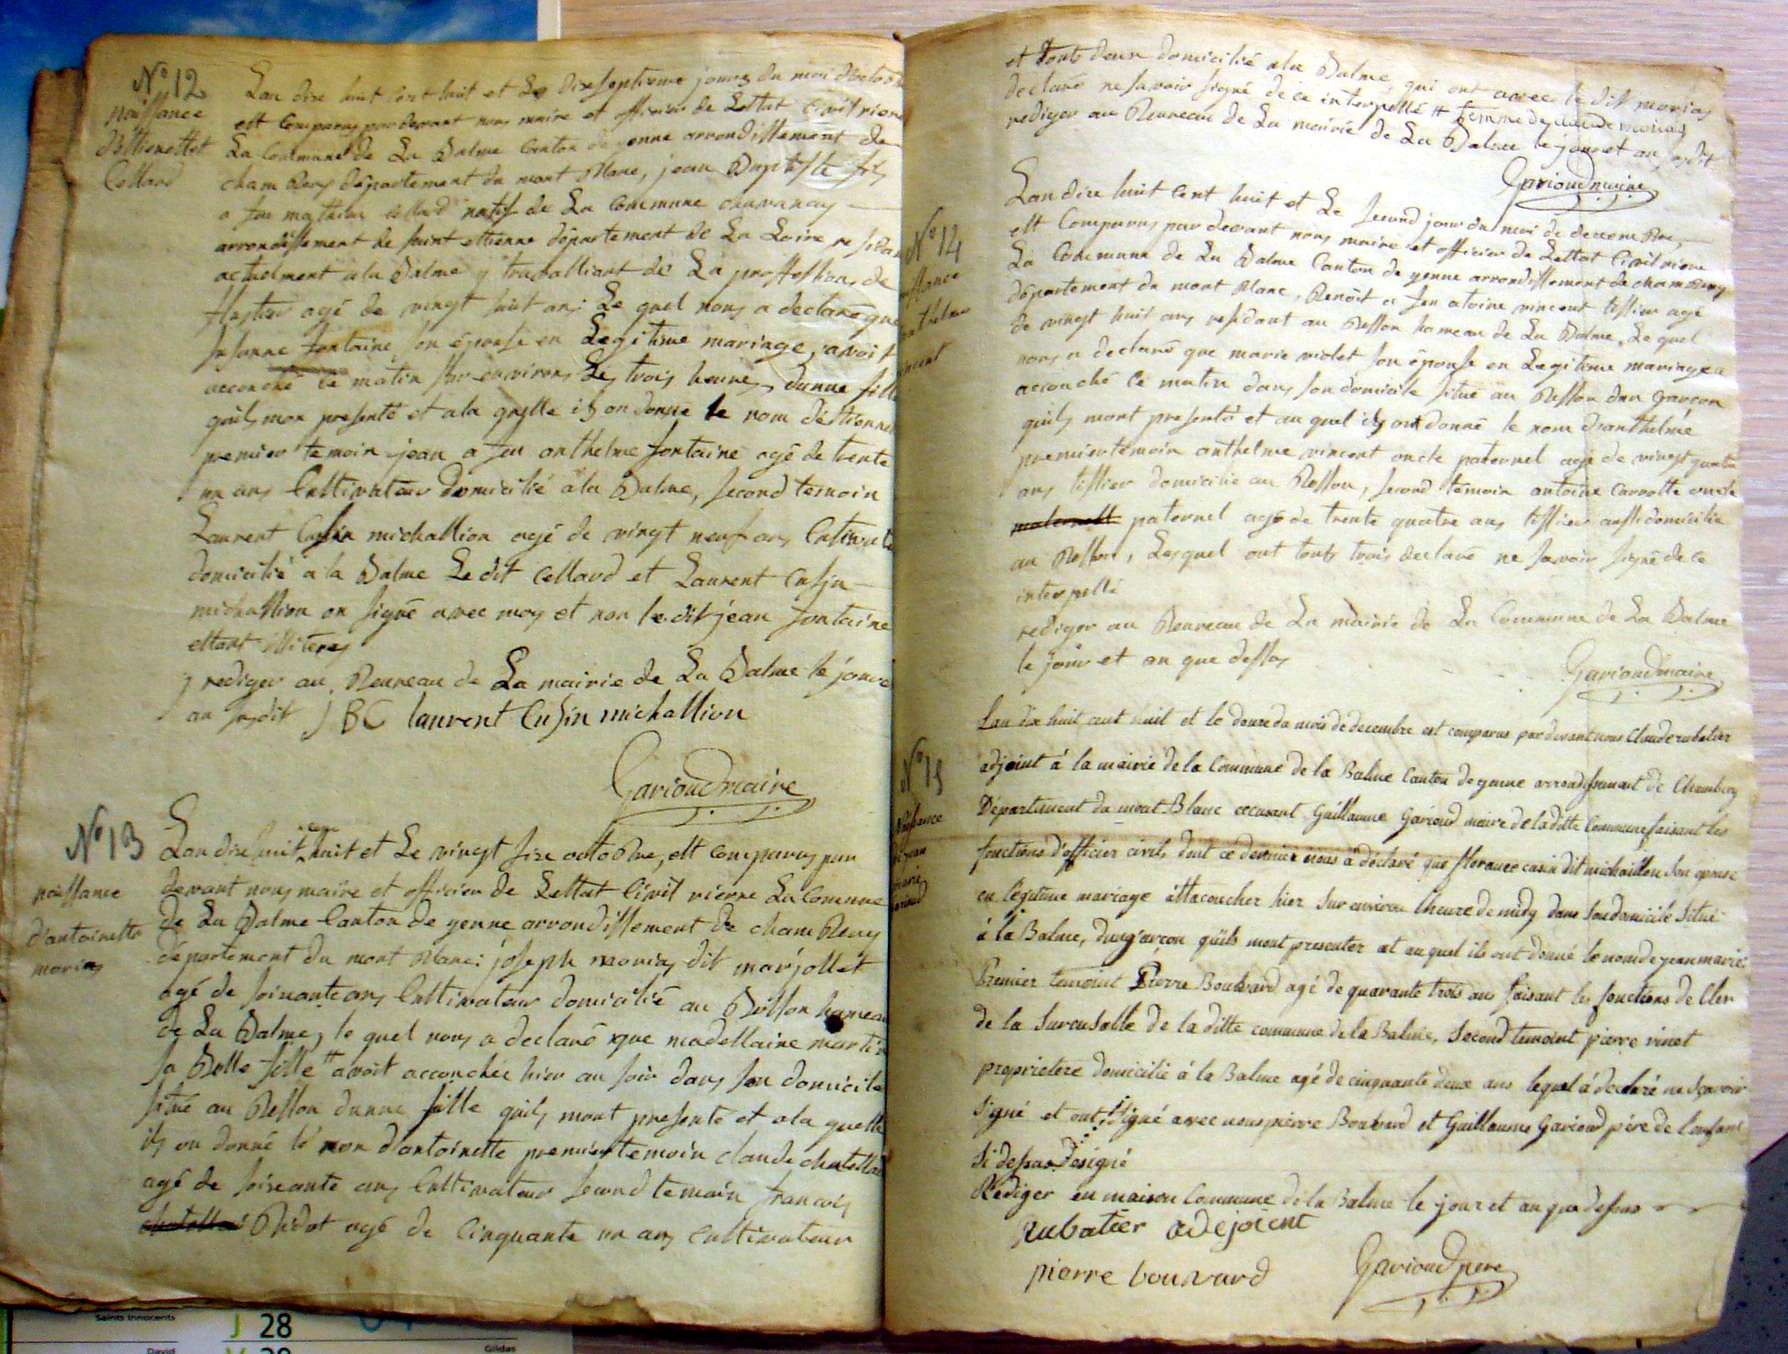 N° 12
naissance
d'éttienettet
Collard
Lan dixe huit cent huit et Le dixseptieme jours du moi d'octob
est Comparus par devant nous maire et officier de Lettat Civil riere
La Commune de La Balme Canton de yenne arrondissement de
chamBery département du mont Blanc, jean Baptiste fils
a feu mathieu collard natif de La Commune
arrondissement de saint ettienne département de La Loire resida
actuelment a la Balme y travalliant de La proffession de
agé de vingt huit ans Le quel nous a declaré que
fontaine son épouse en Legitime mariage, avoit
accouché ce matin sur environs Les trois heures, dunne fill
quils mon presenté et ala quelle ils on donné le nom déttienne
premier temoin jean a feu anthelme fontaine agé de trente
un ans Cultivateur domicilié a la Balme, second temoin
Laurent Cusin michallion agé de vingt neuf ans Cultivate
domicilié a la Balme Le dit Collard et Laurent Cusin
michallion on signé avec moy et non le dit jean fontaine
ettant illiteres
rediger au Bureau de La mairie de La Balme le jour
an susdit JBC laurent Cusin michallion
Garioud maire
N° 13
naissance
d'antoinette
morins
Lan dixe huit cent huit et Le vingt sixe octobre, est comparus par
devant nous maire et officier de Lettat Civil rierre La Comune
de La Balme Canton de yenne arrondissement de chamBery
département du mont Blanc: joseph morins dit marjollet
agé de soixante ans Cultivateur domicilié au Besson hameau
de La Balme, le quel nous a declaré que madellaine martin
sa Belle fille # avoit accouchée hier au soir dans son domicile
situé au Besson dunne fille quils mont presente et ala quelle
ils on donné le non d'antoinette premier temoin claude chatellai
agé de soixante ans Cultivateur second temoin francois
Bidot agé de Cinquante un ans cultivateur
et touts deux domicilié ala Balme qui ont avec le dit morins
declaré ne savoir signé de ce interpellé # femme de claude morins
rediger au Bureau de La mairie de La Balme le jour et an susdit
Garioud maire
N° 14
naissance
d'anthelme
vincent
Lan dixe huit cent huit et Le second jour du moi de decembre,
est Comparus par devant nous maire et officier de Lettat Civil riere
La Commune de La Balme Canton de yenne arrondissement de chambery
département du mont Blanc, Benoit a feu antoine vincent tissier agé
de vingt huit ans residant au Besson hameau de La Balme, Le quel
nous a declaré que marie violet son épouse en Legitime mariage a
accouché ce matin dans son domicile situé au Besson dun garcon
quils mont presenté et au quel ils ont donné le nom d'anthelme
premier temoin anthelme vincent oncle paternel agé de vingt quatre
ans tissier domicilié au Besson, second temoin antoine Carrotte oncle
maternell paternel agé de trente quatre ans tissier aussi domicilié
au Besson, Lesquel ont touts trois declaré ne savoir signé de ce
interpellé
rediger au Bureau de La mairie de La Commune de La Balme
le jour et an que dessus
Garioud maire
N° 15
Naissance
de jean
marie
garioud
Lan dix huit cent huit et le douze du mois de decembre est comparus par devant nous Claude rubatier
adjoint à la mairie de la Commune de la Balme Canton de yenne arrondissement de Chambery
Département du mont Blanc Guillaume Garioud maire de la ditte Commune faisant les
fonctions d'officier civils dont ce dernier nous à déclaré que florance cusin dit michaillon son epouse
en légitime mariage accoucher hier sur environ lheure de midy dans son domicile situé
à la Balme, dung'arcon quils mont presenter et au quel ils ont donné le nom de jean marie.
Premier temoint Pierre Bouvard agé de quarante trois ans faisant les fonctions de Cler
de la sucursalle de la ditte commune de la Balme, second temoint pierre vinet
proprietere domicilié à la Balme agé de cinquante deux ans lequel à declaré ne sçavoir
signé et ont signé avec nous pierre Bouvard et Guillaume Garioud père de l'enfant
si dessus designé
Rédiger en maison Commune de la Balme le jour et an que dessus
Rubatier adejoient
pierre bouvard
Garioud pere
Saints Innocents
J 28
David
Gildas